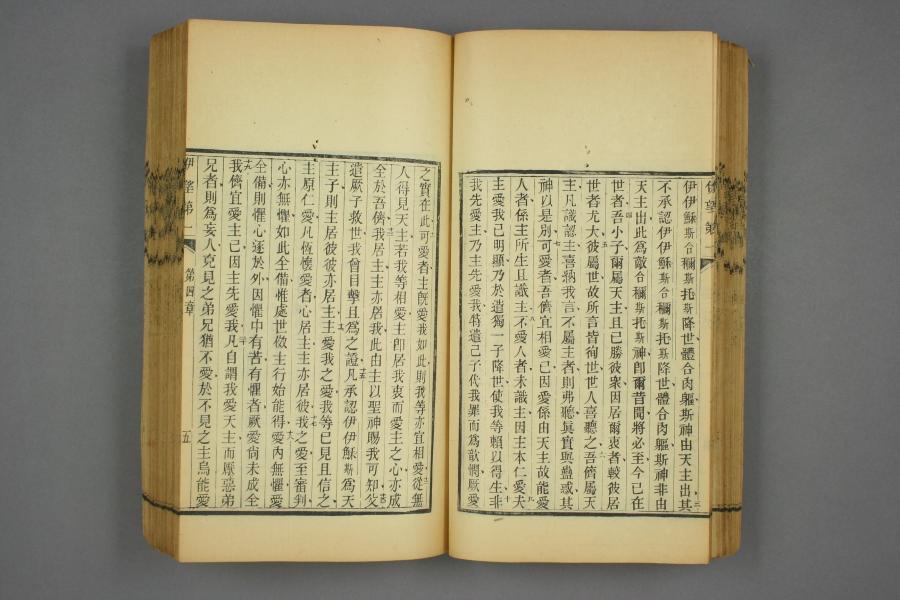 伊伊穌斯合穪斯托斯降世體合肉軀斯神由天主出其
不承認伊伊穌斯合穪斯托斯降世體合肉軀斯神非由
天主出此為敵合穪斯托斯神卽爾昔聞將必至今已在
世者吾小子爾屬天主且已勝彼衆因居爾衷者較彼居
世者尤大彼屬世故所言皆徇世世人喜聽之吾儕屬天
主凡識認主喜納我言不屬主者則弗聽眞實與蠱惑其
神以是別可愛者吾儕宜相愛已因愛係由天主故能愛
人者係主所生且識主不愛人者未識主因主本仁愛夫
主愛我已明顯乃於遣獨一子降世使我等賴以得生非
我先愛主乃主先愛我特遣己子代我罪而為歆憫厥愛
之實在此可愛者主旣愛我如此則我等亦宜相愛從無
人得見天主若我等相愛主卽居我衷而愛主之心亦成
全於吾儕我居主主亦居我此由主以聖神賜我可知父
遣厥子救世我曾目擊且為之證凡承認伊伊穌斯為天
主子則主居彼彼亦居主主愛我之愛我等已見且信之
主原仁愛凡恆懷愛者心居主主亦居彼我之愛至審判
心亦無懼如此全備惟處世傚主行始能得愛內無懼愛
全備則懼心逐於外因懼中有苦有懼者厥愛尙未成全
我儕宜愛主已因主先愛我凡自謂我愛天主而厭惡弟
兄者則為妄人克見之弟兄猶不愛於不見之主烏能愛
伊望第一 第四章 五